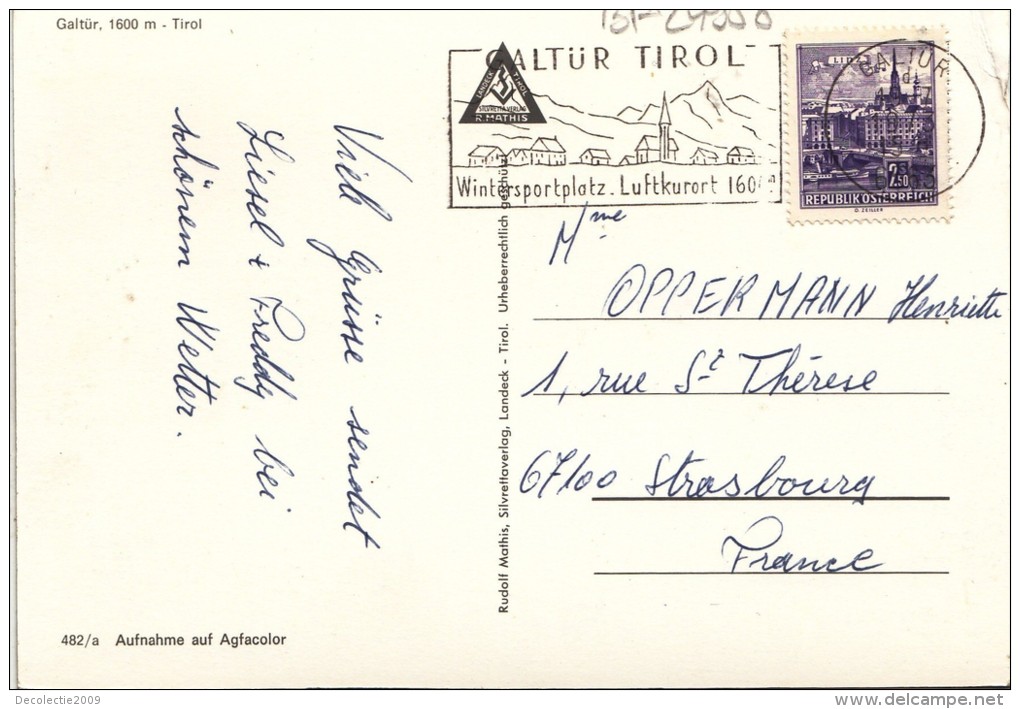 Galtür, 1600 m - Tirol
GALTÜR TIROL
LANDECK TIROL
SILVRETTAVERLAG
R. MATHIS
Wintersportplatz. Luftkurort 1600
GALTÜR
LINZ
2.50
REPUBLIK ÖSTERREICH
O. ZEILLER
Viele Grüsse sendet
Liesel + Freddy bei
schönem Wetter.
Rudolf Mathis, Silvrettaverlag, Landeck - Tirol. Urheberrechtlich geschützt
Mme
OPPERMANN Henriette
1, rue St Thérèse
67100 Strasbourg
France
482/a Aufnahme auf Agfacolor
Decolectie2009
www.delcampe.net